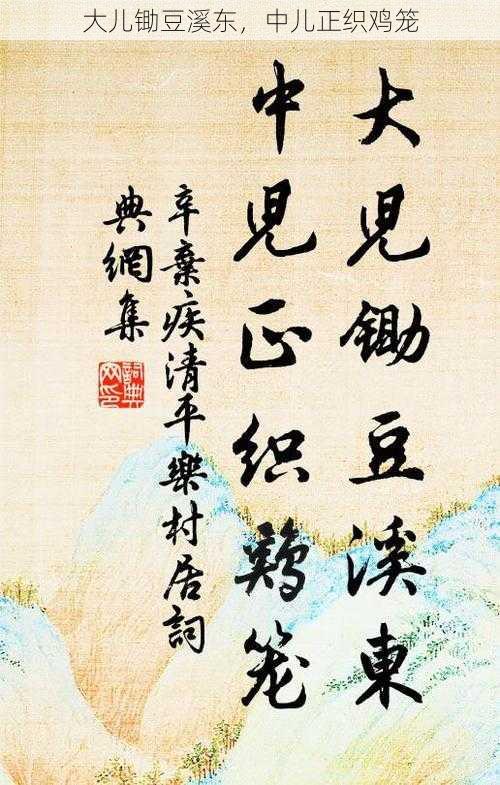 大儿锄豆溪东，中儿正织鸡笼
大兒锄豆溪東
中兒正织鷄笼
辛棄疾清平樂村居詞
典網集
詞典網印